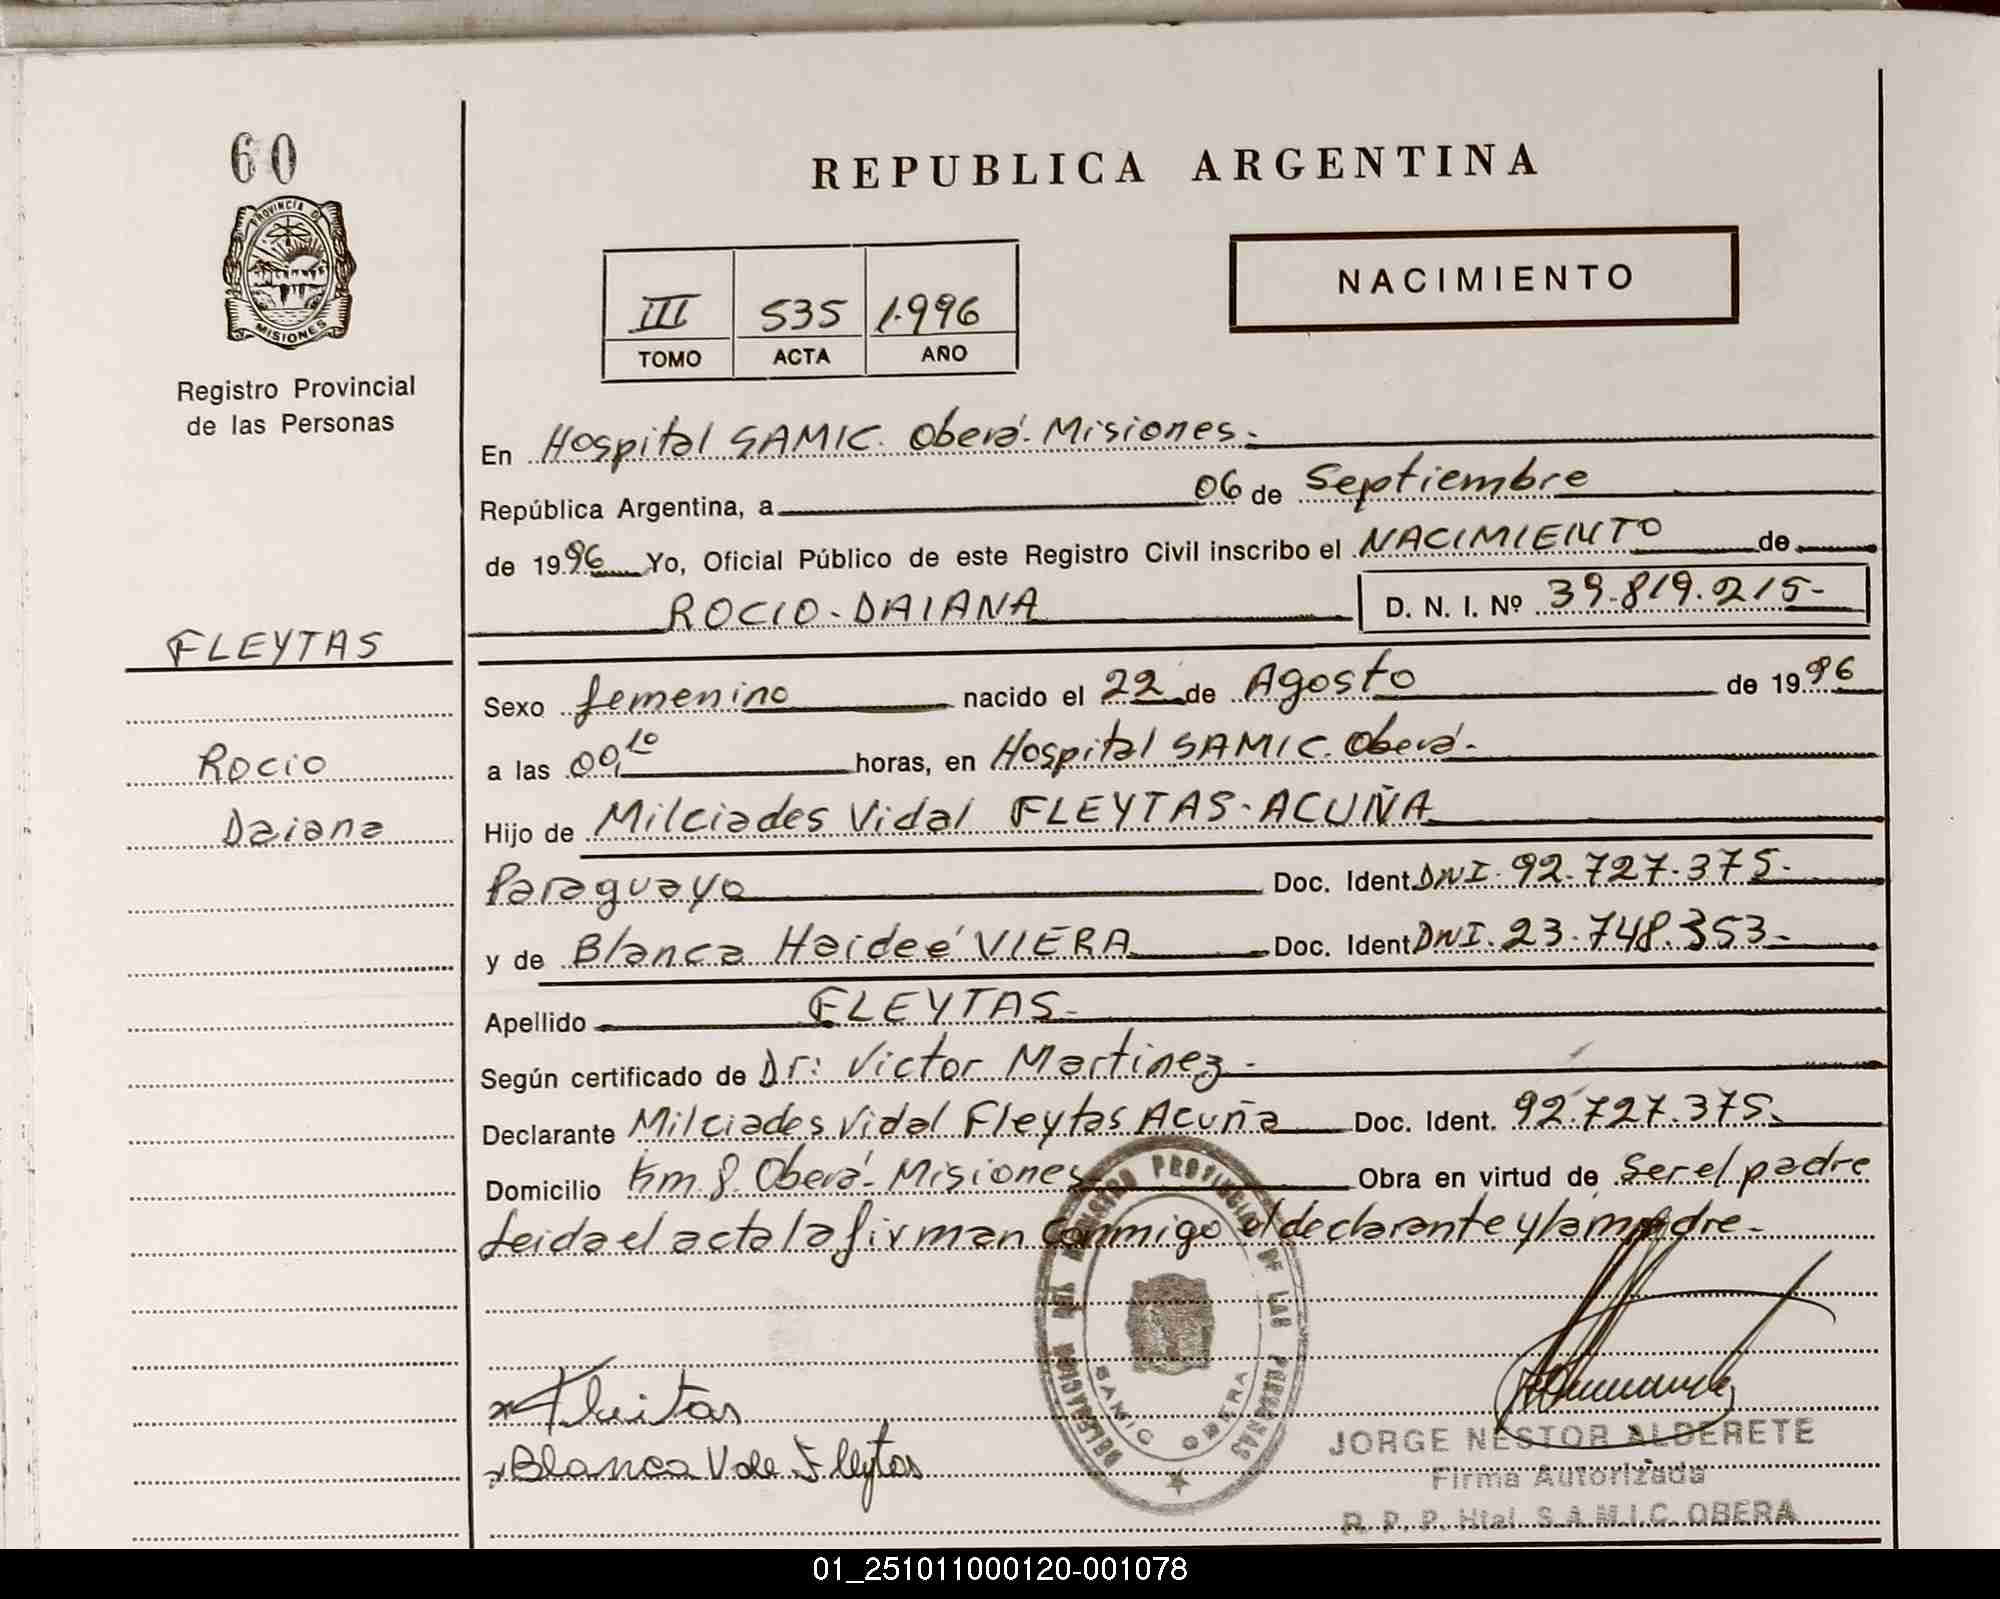 60
PROVINCIA DE
MISIONES
Registro Provincial
de las Personas
REPUBLICA ARGENTINA
NACIMIENTO
III 535 1.996
TOMO ACTA AÑO
En Hospital SAMIC. Oberá. Misiones.
República Argentina, a 06 de Septiembre
de 1996 Yo, Oficial Público de este Registro Civil inscribo el NACIMIENTO de
ROCIO-DAIANA D. N. I. Nº 39.819.215-
FLEYTAS
Sexo femenino nacido el 22 de Agosto de 1996
Rocio
a las 00,10 horas, en Hospital SAMIC. Oberá.
Daiana
Hijo de Milciades Vidal FLEYTAS-ACUÑA
Paraguayo Doc. Ident. DNI. 92.727.375.
y de Blanca Haideé VIERA Doc. Ident. DNI. 23.748.353-
Apellido FLEYTAS-
Según certificado de Dr: Victor Martinez-
Declarante Milciades Vidal Fleytas Acuña Doc. Ident. 92.727.375.
Domicilio Km 8. Oberá- Misiones Obra en virtud de Ser el padre
Leida el acta la firman conmigo el declarante y la madre-
DELEGACION DEL REGISTRO PROVINCIAL DE LAS PERSONAS
SAMIC OBERA
x Fleitas
x Blanca V de Fleytas
JORGE NESTOR ALDERETE
Firma Autorizada
R. P. P. Htal. S.A.M.I.C. OBERA
01_251011000120-001078